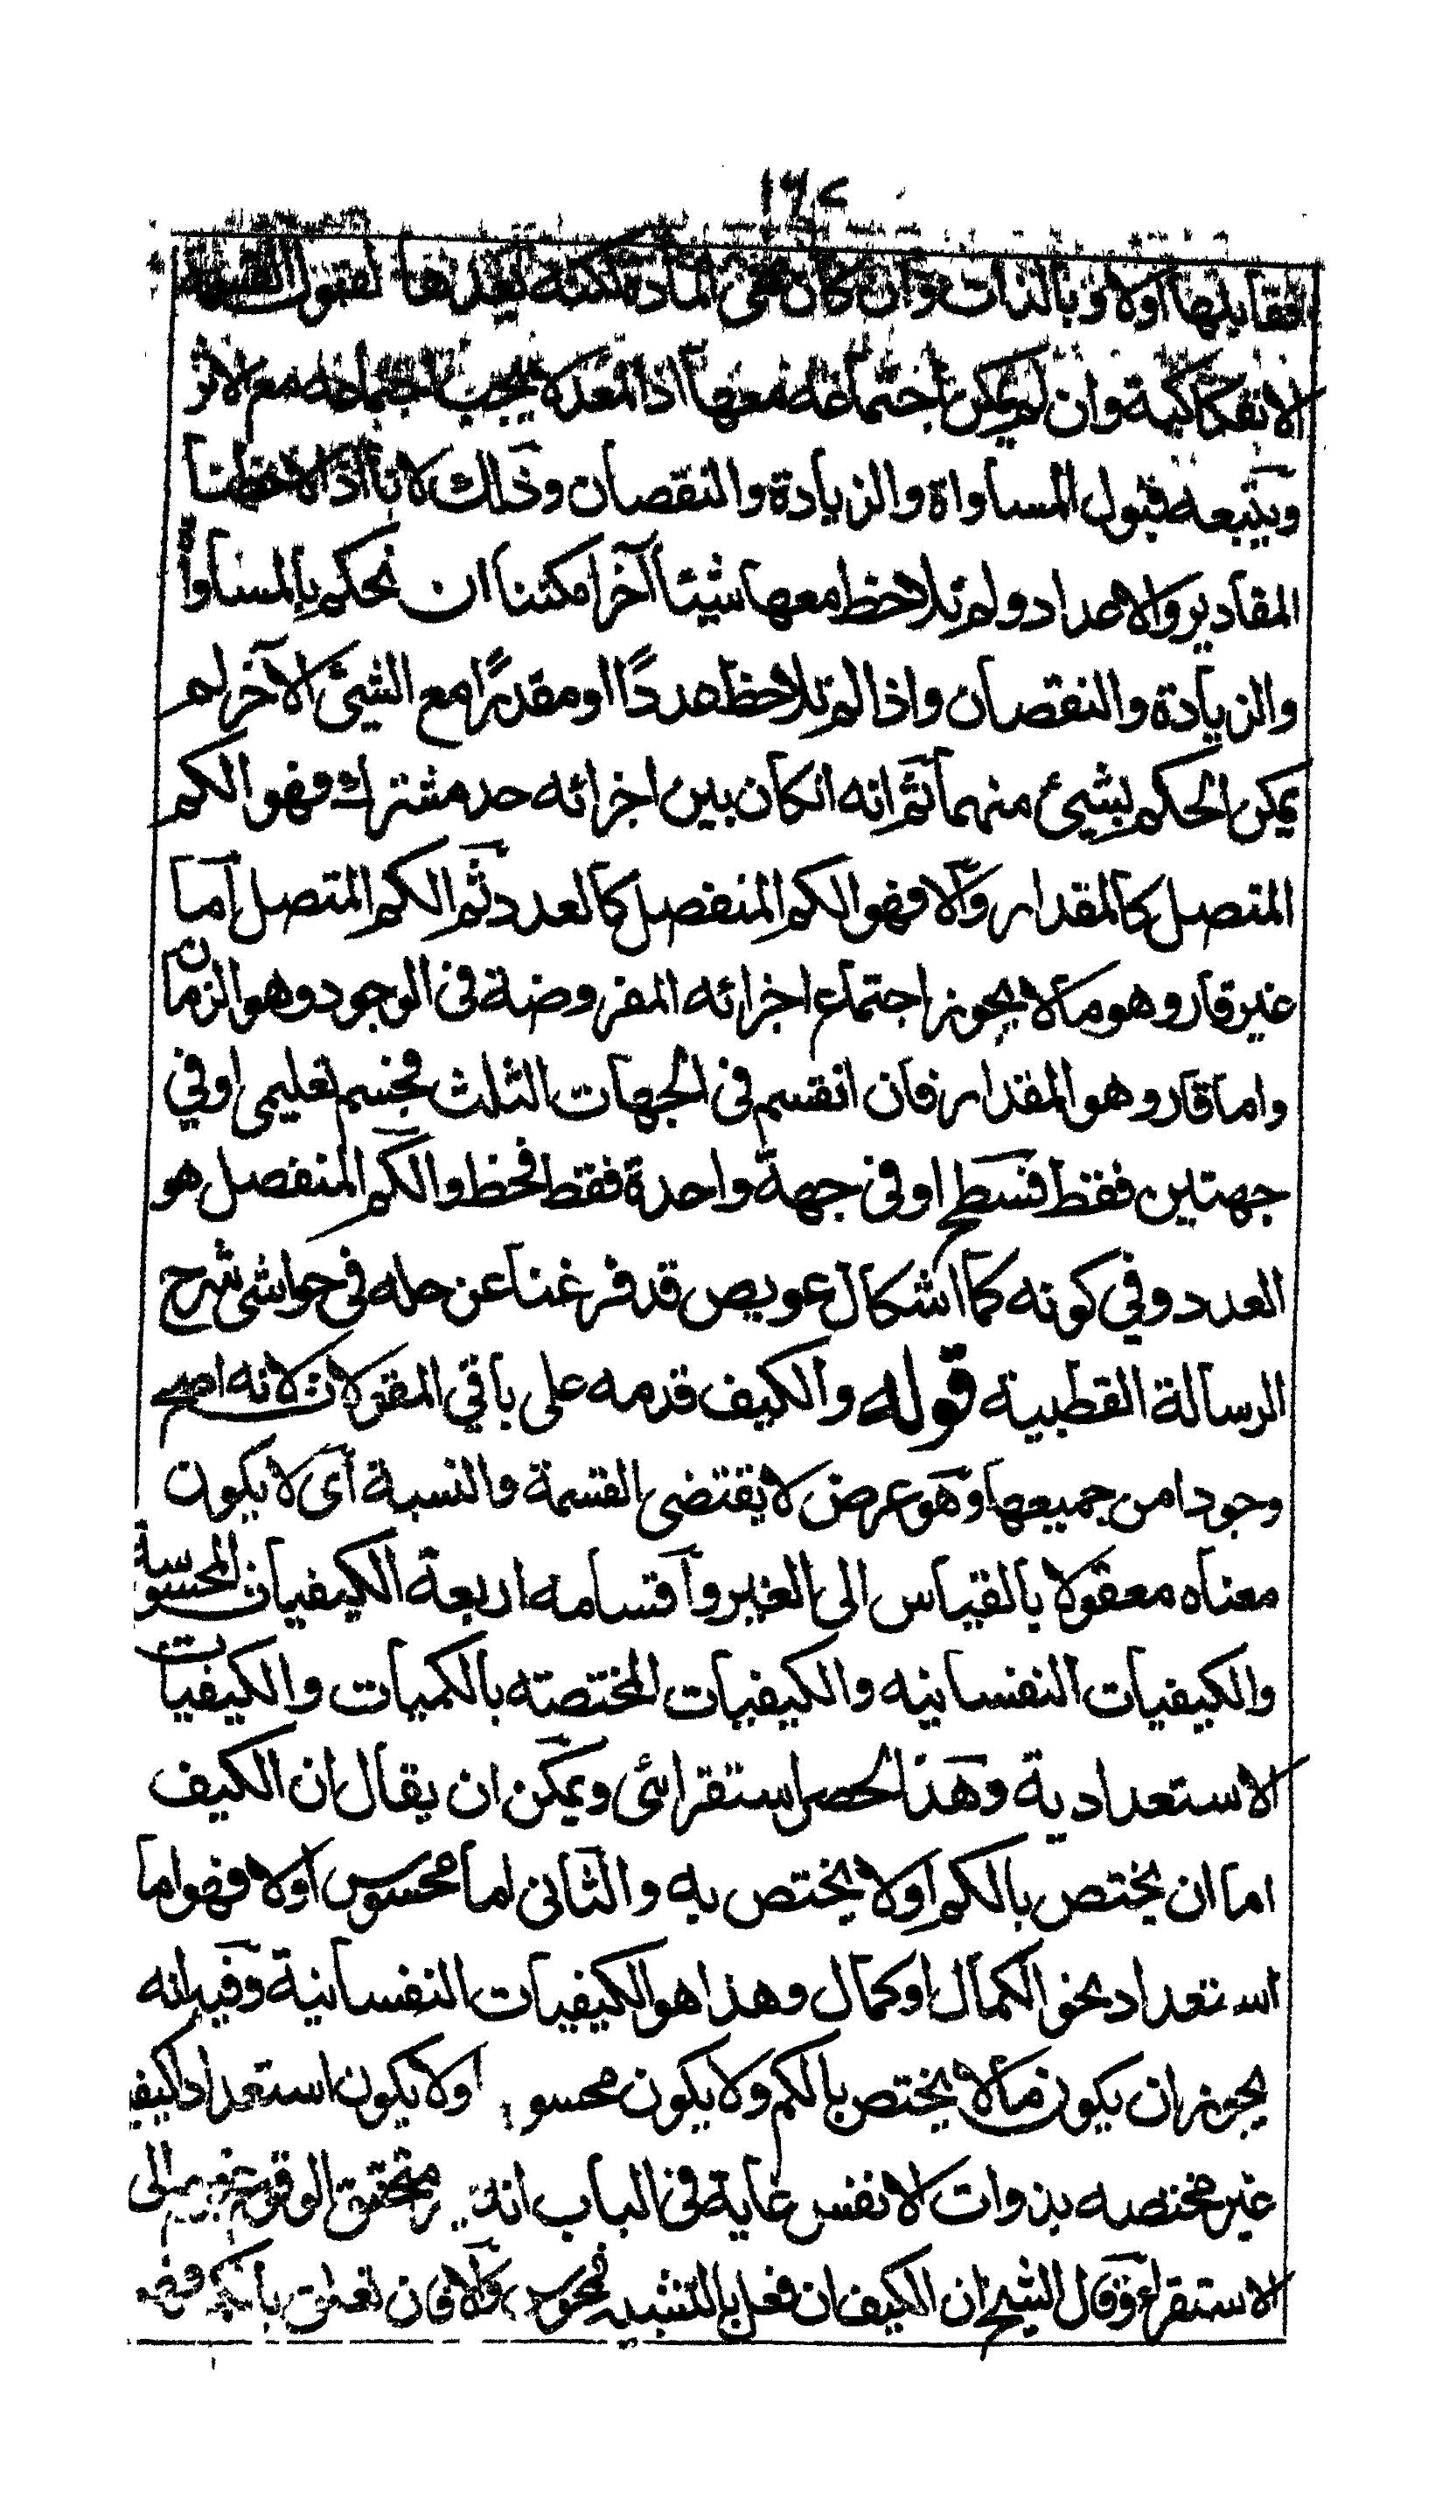 ١٦٧
فقابلتها اولا وبالذات وان كان هي المادة لكنه يعدها لقبول القسمة
الانفكاكية وان لم يمكن اجتماعه معها اذ المعد لا يجب اجتماعه مع الاثر
ويتبعه قبول المساواة والزيادة والنقصان وذلك لانا اذا لاحظنا
المقادير والاعداد ولم نلاحظ معها شيئا آخر امكننا ان نحكم بالمساواة
والزيادة والنقصان واذا لم نلاحظ عددًا او مقدرًا مع الشيئ الآخر لم
يمكن الحكم بشيئ منهما ثم انه انكان بين اجزائه حد مشترك فهو الكم
المتصل كالمقدار والا فهو الكم المنفصل كالعدد ثم الكم المتصل اما
غير قار وهو ما لا يجوز اجتماع اجزائه المفروضة في الوجود وهو الزمان
واما قار وهو المقدار فان انقسم في الجهات الثلث فجسم تعليمى او في
جهتين فقط فسطح او في جهة واحدة فقط فخط والكم المنفصل هو
العدد وفي كونه كما اشكال عويص قد فرغنا عن حله في حواشى شرح
الرسالة القطبية قوله والكيف قدمه على باقي المقولات لانه اصح
وجودا من جميعها وهو عرض لا يقتضى القسمة والنسبة اى لا يكون
معناه معقولا بالقياس الى الغير واقسامه اربعة الكيفيات المحسوسة
والكيفيات النفسانيه والكيفيات المختصته بالكميات والكيفيات
الاستعدادية وهذا الحصر استقرائى ويمكن ان يقال ان الكيف
اما ان يختص بالكم اولا يختص به والثانى اما محسوس اولا فهو اما
استعداد نحو الكمال او كمال وهذا هو الكيفيات النفسانية وفيه انه
يجوز ان يكون ما لا يختص بالكم ولا يكون محسو اولا يكون استعداد كيفي
غير مختصه بذوات الانفس غاية في الباب انه لم تحقق الوقوع الى
الاستقراء وقال الشيخ ان الكيف ان فعل بالتشبيه فمحوس والا فان تعلق